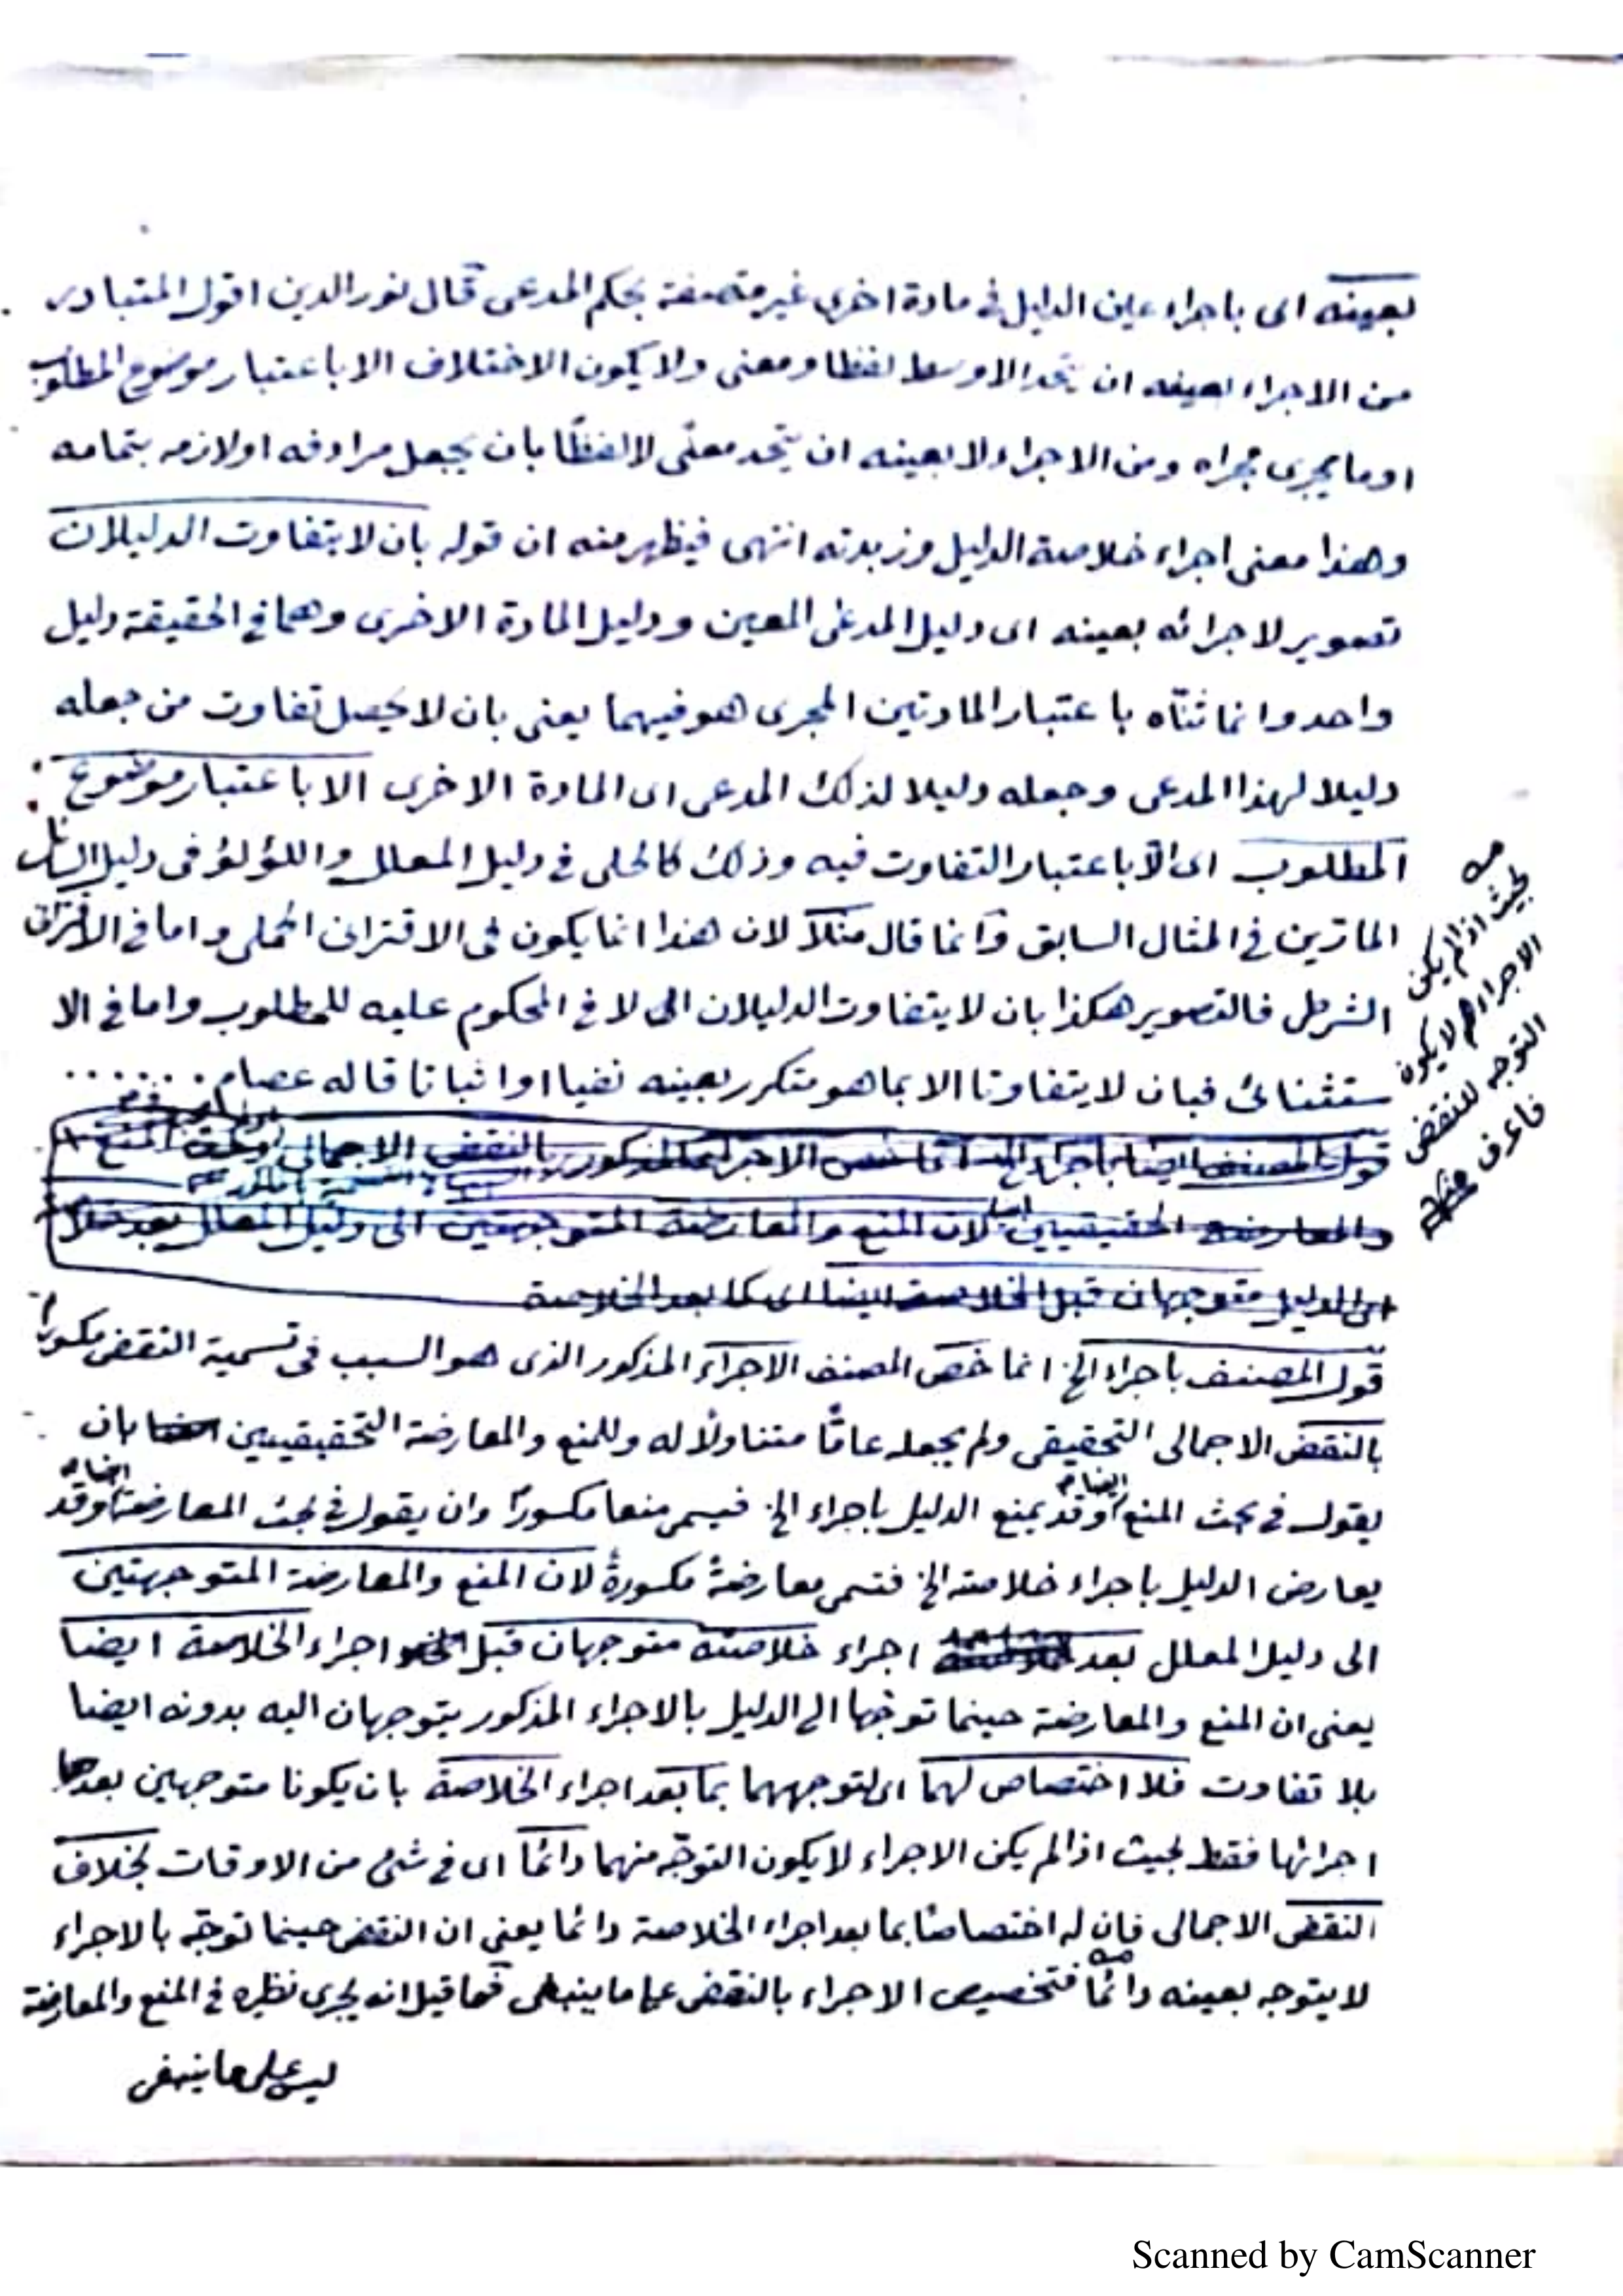 بعينه اى باجراء عين الدليل فى مادة اخرى غير متصفة بحكم المدعى قال نور الدين اقول المتبادر
من الاجراء بعينه ان يتحد الاوسط لفظا ومعنى ولا يكون الاختلاف الا باعتبار موضوع المطلوب
او ما يجرى مجراه ومن الاجراء لا بعينه ان يتحد معنًى لا لفظًا بان يجعل مرادفه او لازمه بتمامه
وهذا معنى اجراء خلاصة الدليل وزبدته انتهى فيظهر منه ان قوله بان لا يتفاوت الدليلان
تصوير لاجرائه بعينه اى دليل المدعى المعين ودليل المادة الاخرى وهما فى الحقيقة دليل
واحد وانما ثنّاه باعتبار المادتين المجرى هو فيهما يعنى بان لا يحصل تفاوت من جعله
دليلا لهذا المدعى وجعله دليلا لذلك المدعى اى المادة الاخرى الا باعتبار موضوع
المطلوب اى الّا باعتبار التفاوت فيه وذلك كالحلى فى دليل المعلل واللؤلؤ فى دليل السائل
المارّين فى المثال السابق وانما قال مثلًا لان هذا انما يكون فى الاقترانى الحملى واما فى الاقترانى
الشرطى فالتصوير هكذا بان لا يتفاوت الدليلان الى لا فى المحكوم عليه للمطلوب واما فى الا
ستثنائى فبان لا يتفاوتا الا بما هو متكرر بعينه نفيا او اثباتا قاله عصام . . . . . .
قول المصنف باجراء الخ الاجراء المذكور بالنقض الاجمالى المنع
والمعارضة الحقيقيين لان المنع والمعارضة المتوجهتين الى دليل المعلل بعد
الدليل متوجهان قبل الخلاصة ايضا اى كما بعد الخلاصة
قول المصنف باجراء الخ انما خصّ المصنف الاجراء المذكور الذى هو السبب فى تسمية النقض مكسورًا
بالنقض الاجمالى التحقيقى ولم يجعله عامًّا متناولًا له وللمنع والمعارضة التحقيقيين بان
يقول فى بحث المنع ايضا وقد يمنع الدليل باجراء الخ فيسمى منعا مكسورًا وان يقول فى بحث المعارضة ايضا وقد
يعارض الدليل باجراء خلاصته الخ فتسمى معارضةً مكسورةً لان المنع والمعارضة المتوجهتين
الى دليل المعلل بعد اجراء خلاصته متوجهان قبل اجراء الخلاصة ايضا
يعنى ان المنع والمعارضة حينما توجّها الى الدليل بالاجراء المذكور يتوجهان اليه بدونه ايضا
بلا تفاوت فلا اختصاص لهما اى لتوجههما بما بعد اجراء الخلاصة بان يكونا متوجهين بعد
اجرائها فقط بحيث اذا لم يكن الاجراء لا يكون التوجّه منهما دائمًا اى فى شئ من الاوقات بخلاف
النقض الاجمالى فان له اختصاصًا بما بعد اجراء الخلاصة دائما يعنى ان النقض حينما توجّه بالاجراء
لا يتوجه بعينه دائمًا فتخصيص الاجراء بالنقض على ما ينبغى فما قيل انه يجرى نظيره فى المنع والمعارضة
ليس على ما ينبغى
بحيث اذا لم يكن
الاجراء لا يكون
التوجه للنقض
فاعرف
Scanned by CamScanner